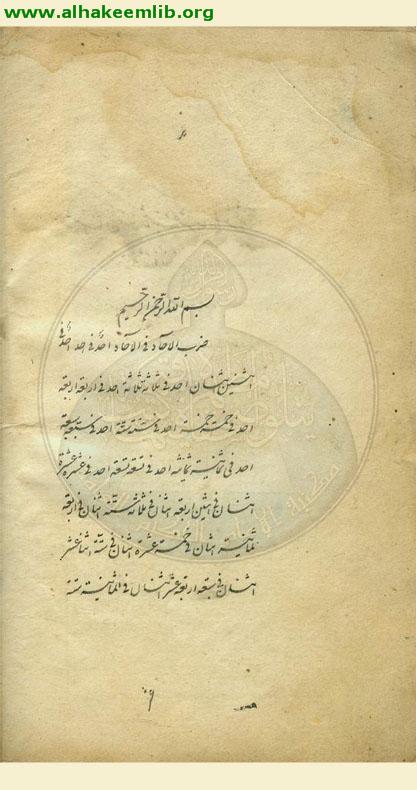 www.alhakeemlib.org
بسم الله الرحمن الرحيم
ضرب الاحاد في الاحاد احد في احد احد في
اثنين اثنان احد في ثلاثة ثلاثة احد في اربعة اربعة
احد في خمسة خمسة احد في ستة ستة احد في سبعة سبعة
احد في ثمانية ثمانية احد في تسعة تسعة احد في عشرة عشرة
اثنان في اثنين اربعة اثنان في ثلاثة ستة اثنان في اربعة
ثمانية اثنان في خمسة عشرة اثنان في ستة اثنا عشر
اثنان في سبعة اربعة عشر اثنان في ثمانية ستة